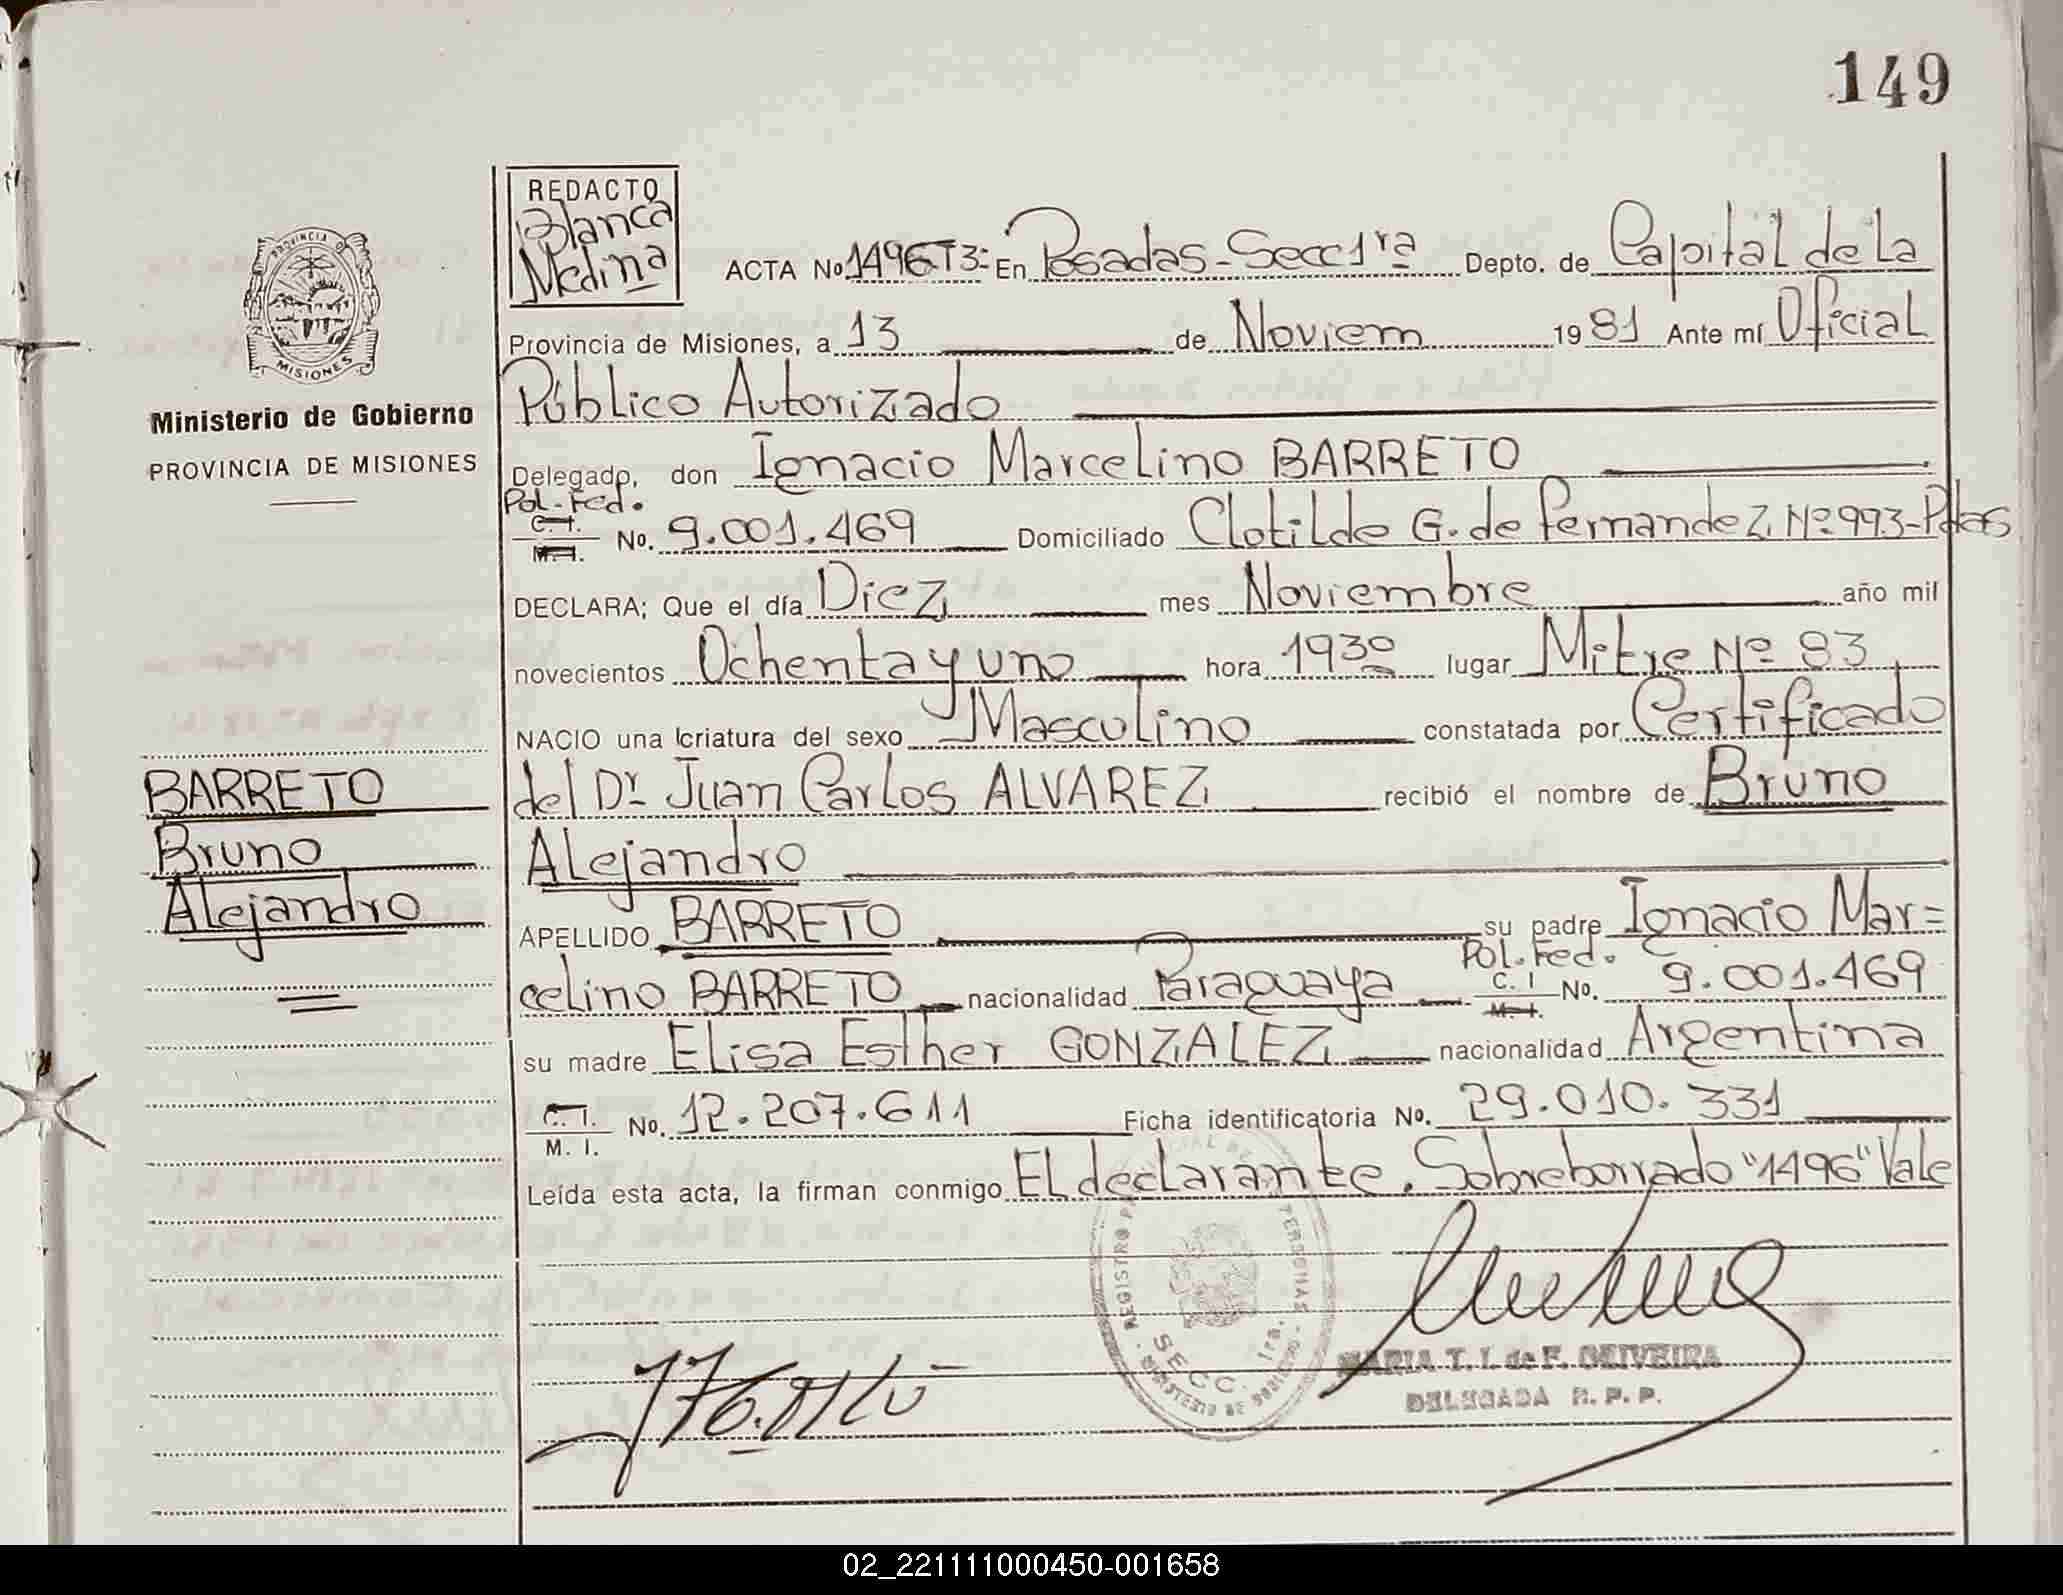 149
REDACTO
Blanca
Medina
ACTA No 1496T3= En Posadas-Secc 1ra Depto. de Capital de La
Provincia de Misiones, a 13 de Noviem 1981 Ante mí Oficial
Público Autorizado
Delegado, don Ignacio Marcelino BARRETO
Pol.Fed.
C.I.
M.I. No. 9.001.469 Domiciliado Clotilde G. de Fernandez Nº 993-Pdas
DECLARA; Que el día Diez mes Noviembre año mil
novecientos Ochenta y uno hora 19 30 lugar Mitre Nº 83
NACIO una criatura del sexo Masculino constatada por Certificado
del Dr Juan Carlos ALVAREZ recibió el nombre de Bruno
Alejandro
APELLIDO BARRETO su padre Ignacio Mar=
Pol.Fed.
celino BARRETO nacionalidad Paraguaya C.I M.I. No. 9.001.469
su madre Elisa Esther GONZALEZ nacionalidad Argentina
C.I.
M.I. No. 12.207.611 Ficha identificatoria No. 29.010.331
Leída esta acta, la firman conmigo El declarante. Sobreborrado "1496" Vale
PROVINCIA DE
MISIONES
Ministerio de Gobierno
PROVINCIA DE MISIONES
BARRETO
Bruno
Alejandro
SECC. 1ra.
MARIA T. I. de F. OLIVEIRA
DELEGADA R. P. P.
02_221111000450-001658